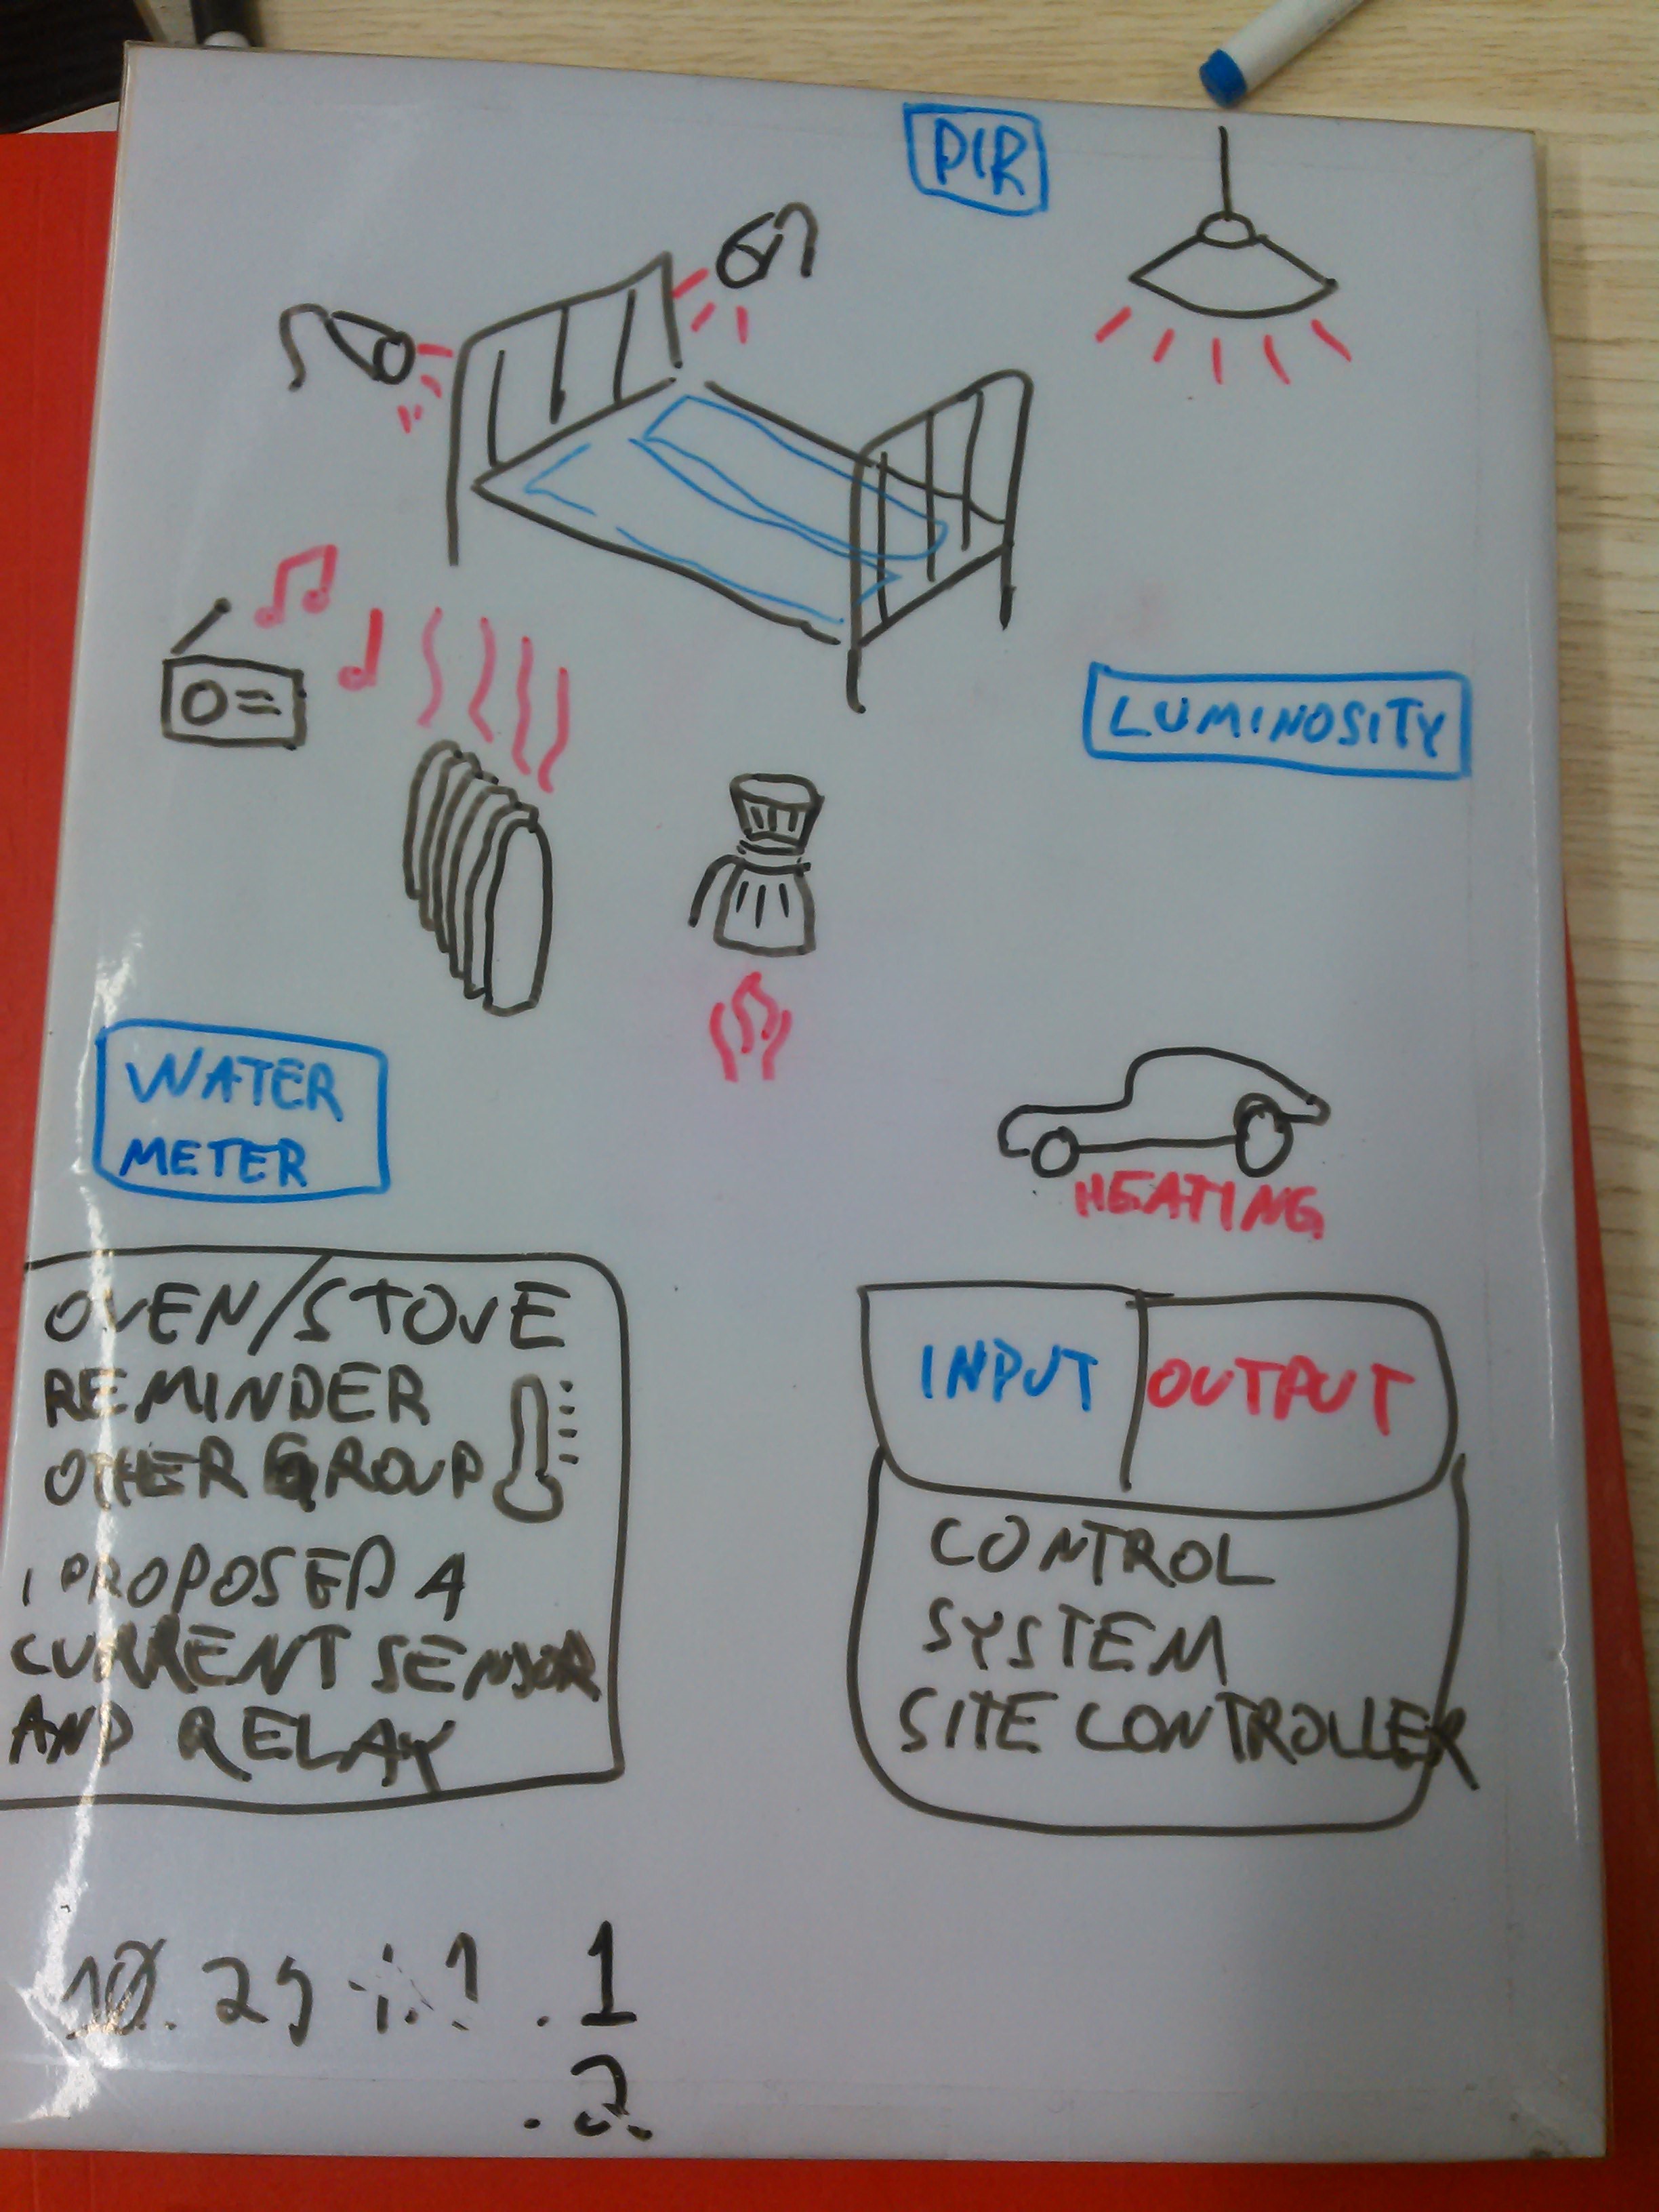 PIR
LUMINOSITY
WATER
METER
HEATING
OVEN/STOVE
REMINDER
OTHER GROUP
I PROPOSED A
CURRENT SENSOR
AND RELAY
INPUT
OUTPUT
CONTROL
SYSTEM
SITE CONTROLLER
.1
.2